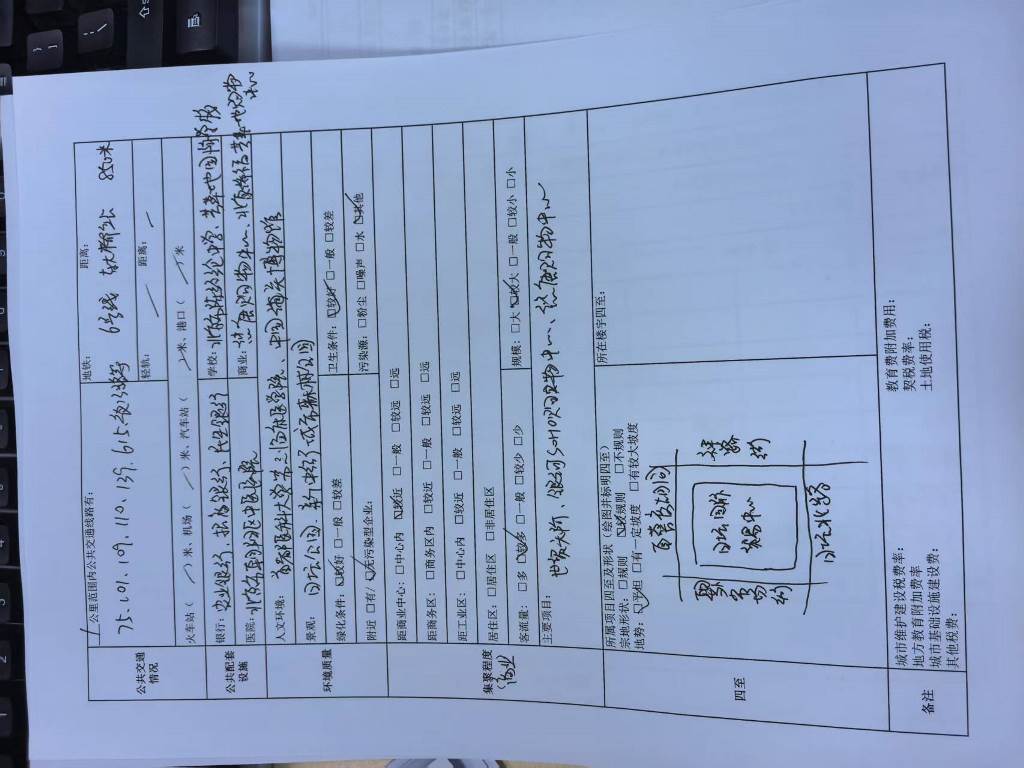 公共交通情况
1公里范围内公共交通线路有：
75.101.109.110.139.615.夜
地铁： 距离：
6号线 850米
轻轨： 距离：
火车站（ ）米、机场（ ）米、汽车站（ ）米、港口（ ）米
公共配套设施
银行：农业银行、招商银行、民生银行
学校：北京陈经纶中学、芳草地国际学校
医院：北京朝阳区中医医院
商业：悠唐购物中心、北京侨福芳草地购物中心
环境质量
人文环境：首都医科大学第三临床医学院、中国海关博物馆
景观：日坛公园、新中街城市森林公园
绿化条件：☑较好 □一般 □较差
卫生条件：☑较好 □一般 □较差
附近 □有/☑无污染型企业：
污染源：□粉尘 □噪声 □水 ☑其他
集聚程度（商业）
距商业中心：□中心内 ☑较近 □一般 □较远 □远
距商务区：□商务区内 □较近 □一般 □较远 □远
距工业区：□中心内 □较近 □一般 □较远 □远
居住区：□居住区 □非居住区
客流量：□多 ☑较多 □一般 □较少 □少
规模：□大 ☑较大 □一般 □较小 □小
主要项目：
世贸天阶、银河SOHO购物中心、悠唐购物中心
四至
所属项目四至及形状（绘图并标明四至）
宗地形状：□规则 ☑较规则 □不规则
地势：☑平坦 □有一定坡度 □有较大坡度
所在楼宇四至：
日坛国际贸易中心
日坛北路
备注
城市维护建设税费率：
教育费附加费用：
地方教育附加费率
契税费率：
城市基础设施建设费：
土地使用税：
其他税费：